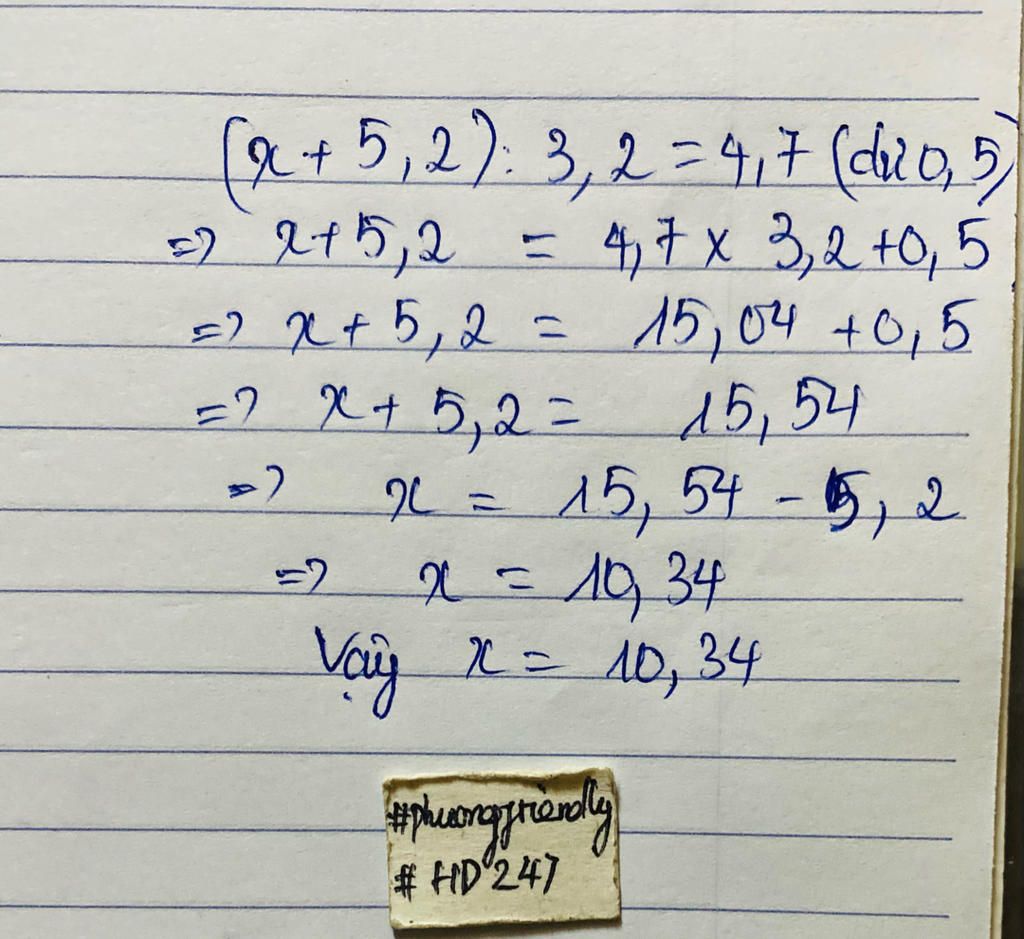 (x + 5,2) : 3,2 = 4,7 (dư 0,5)
=> x + 5,2 = 4,7 x 3,2 + 0,5
=> x + 5,2 = 15,04 + 0,5
=> x + 5,2 = 15,54
=> x = 15,54 - 5,2
=> x = 10,34
Vậy x = 10,34
#phuongfriendly
# HD 247